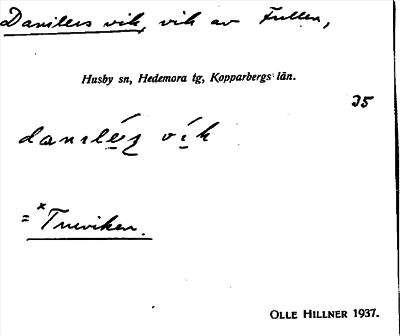 Danilers vik, vik av Fullen,
Husby sn, Hedemora tg, Kopparbergs län.
35
vik
Olle Hillner 1937.